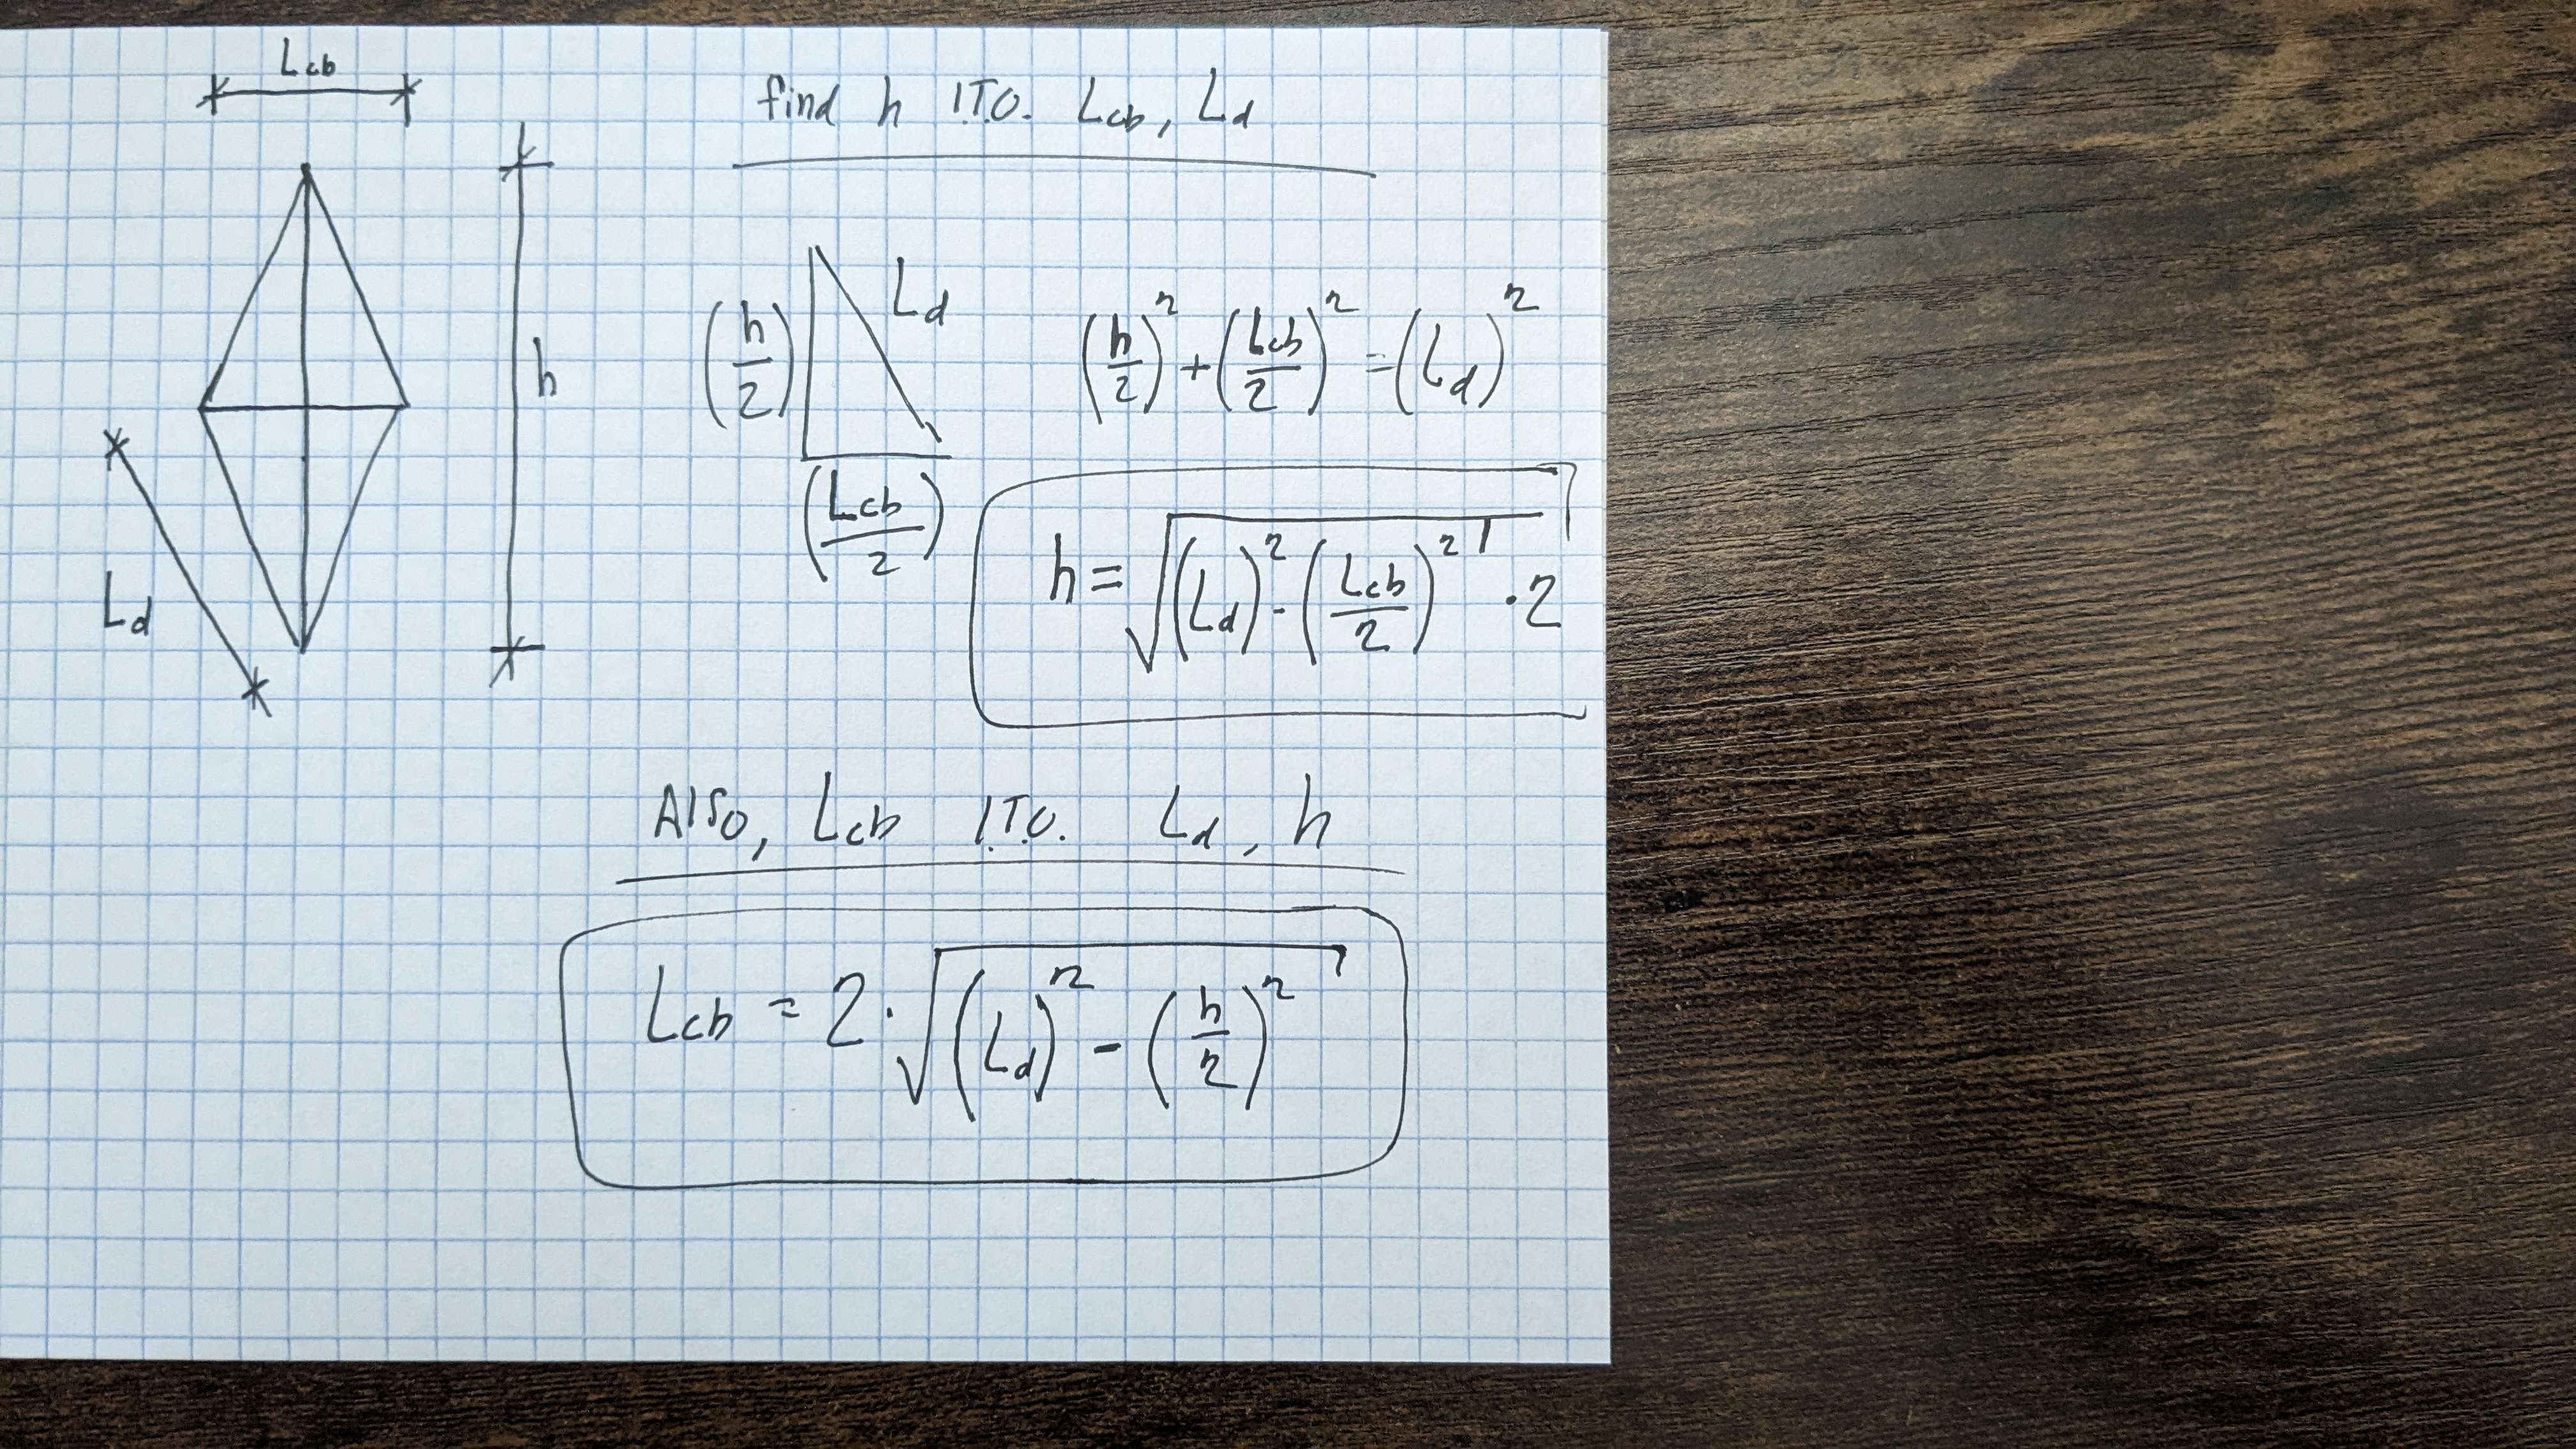 Lcb
find h I.T.O. Lcb, Ld
h
Ld
(h/2)
Ld
(Lcb/2)
(h/2)² + (Lcb/2)² = (Ld)²
h = √((Ld)² - (Lcb/2)²) · 2
Also, Lcb I.T.O. Ld, h
Lcb = 2 · √((Ld)² - (h/2)²)